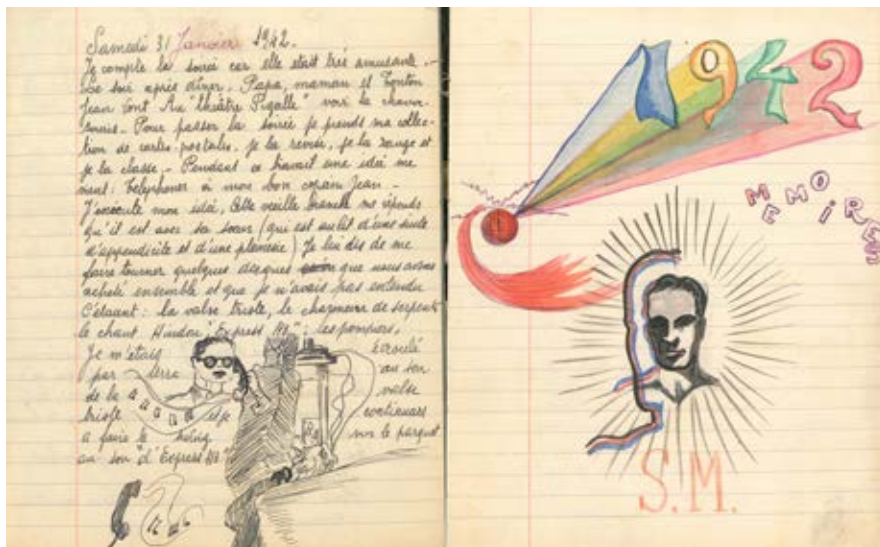 Samedi 31 Janvier 1942.
Je compte la soirée car elle était très amusante.
Le soir après dîner, Papa, maman et Tonton
Jean vont Au "théâtre Pigalle" voir la chauve
souris. Pour passer la soirée je prends ma collec-
tion de cartes-postales, je la revise, je la range et
je la classe. Pendant ce travail une idée me
vient: Telephoner à mon bon copain Jean.
J'execute mon idée, Cette vieille branche me réponds
qu'il est avec sa sœur (qui est au lit d'une suite
d'appendicite et d'une pleuresie) Je lui dis de me
faire tourner quelques disques que nous avons
acheté ensemble et que je n'avais pas entendu
C'étaient: la valse triste, le charmeur de serpents
le chant Hindou, "Express", les pompiers.
Je m'étais écroulé
par terre au son
de la valse
triste et je continuais
a faire le sur le parquet
au son "d'Express
1942
MEMOIRES
S.M.